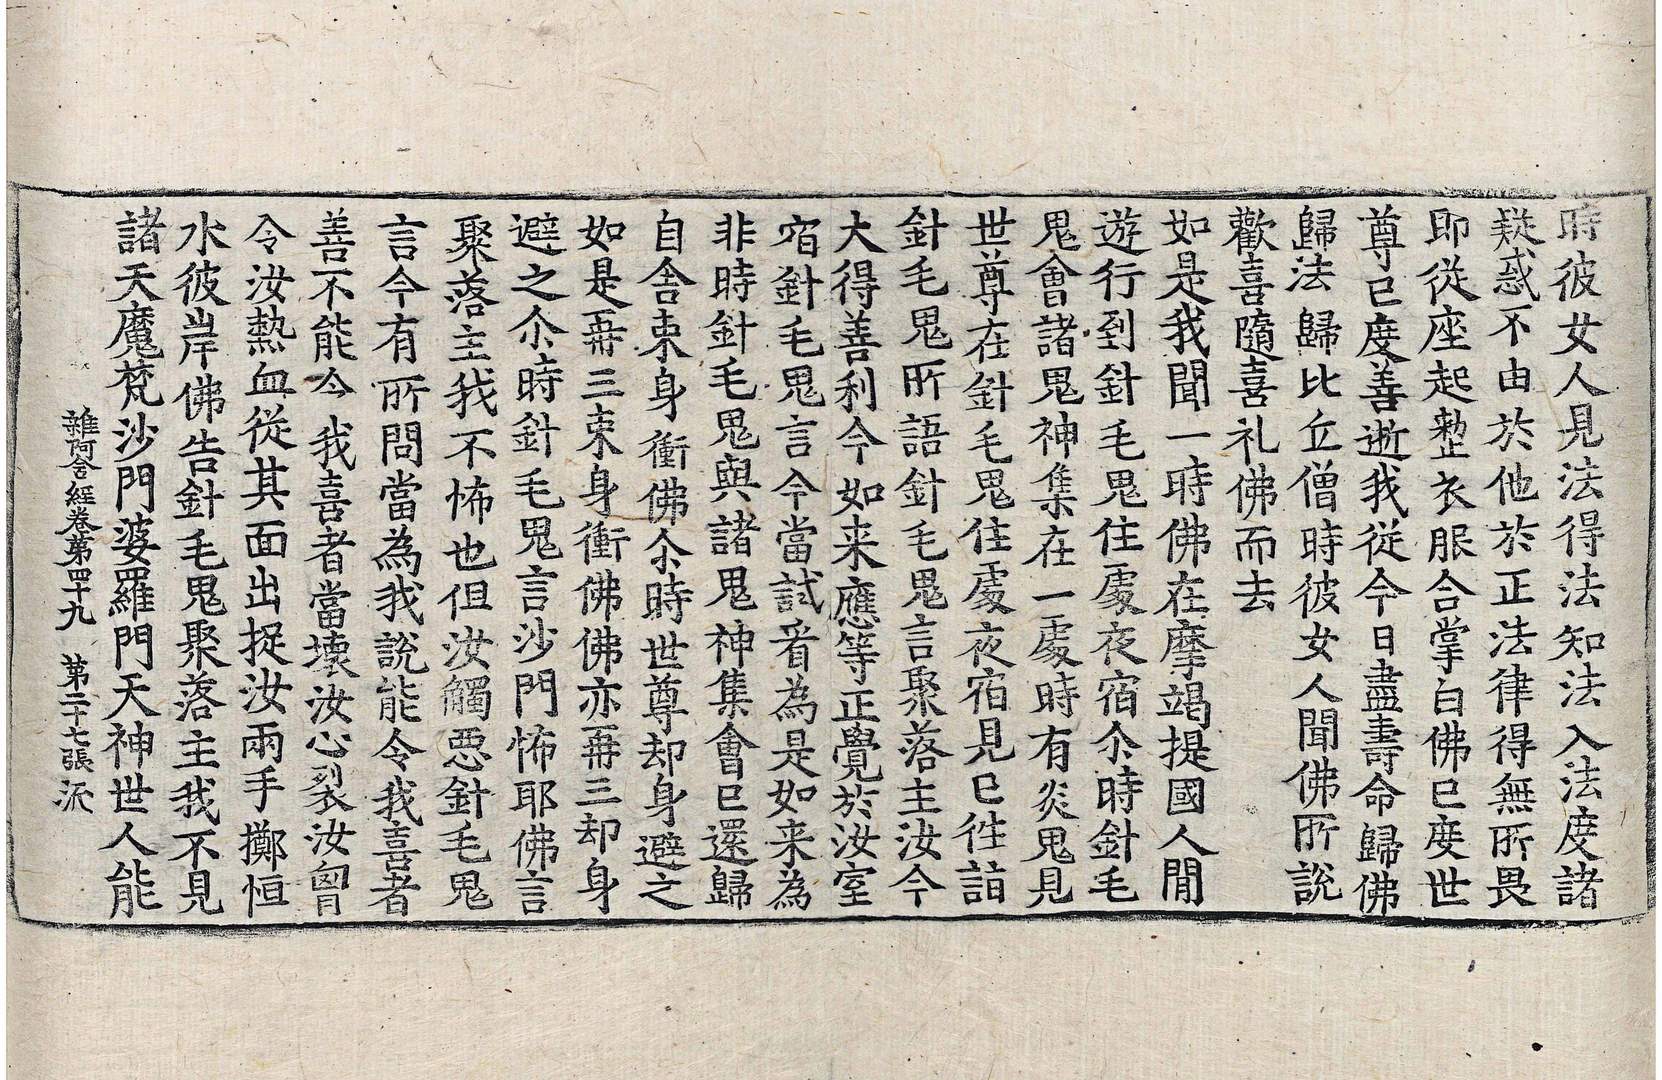 時彼女人見法得法知法入法度諸
疑惑不由於他於正法律得無所畏
即從座起整衣服合掌白佛已度世
尊已度善逝我從今日盡壽命歸佛
歸法歸比丘僧時彼女人聞佛所說
歡喜隨喜礼佛而去
如是我聞一時佛在摩竭提國人間
遊行到針毛鬼住處夜宿尒時針毛
鬼會諸鬼神集在一處時有炎鬼見
世尊在針毛鬼住處夜宿見已往詣
針毛鬼所語針毛鬼言聚落主汝今
大得善利今如来應等正覺於汝室
宿針毛鬼言今當試看為是如来為
非時針毛鬼與諸鬼神集會已還歸
自舍束身衝佛尒時世尊却身避之
如是再三束身衝佛佛亦再三却身
避之尒時針毛鬼言沙門怖耶佛言
聚落主我不怖也但汝觸惡針毛鬼
言今有所問當為我說能令我喜者
善不能令我喜者當壞汝心裂汝胷
令汝熱血從其面出捉汝兩手擲恒
水彼岸佛告針毛鬼聚落主我不見
諸天魔梵沙門婆羅門天神世人能
雜阿含經卷第四十九　第二十七張　派